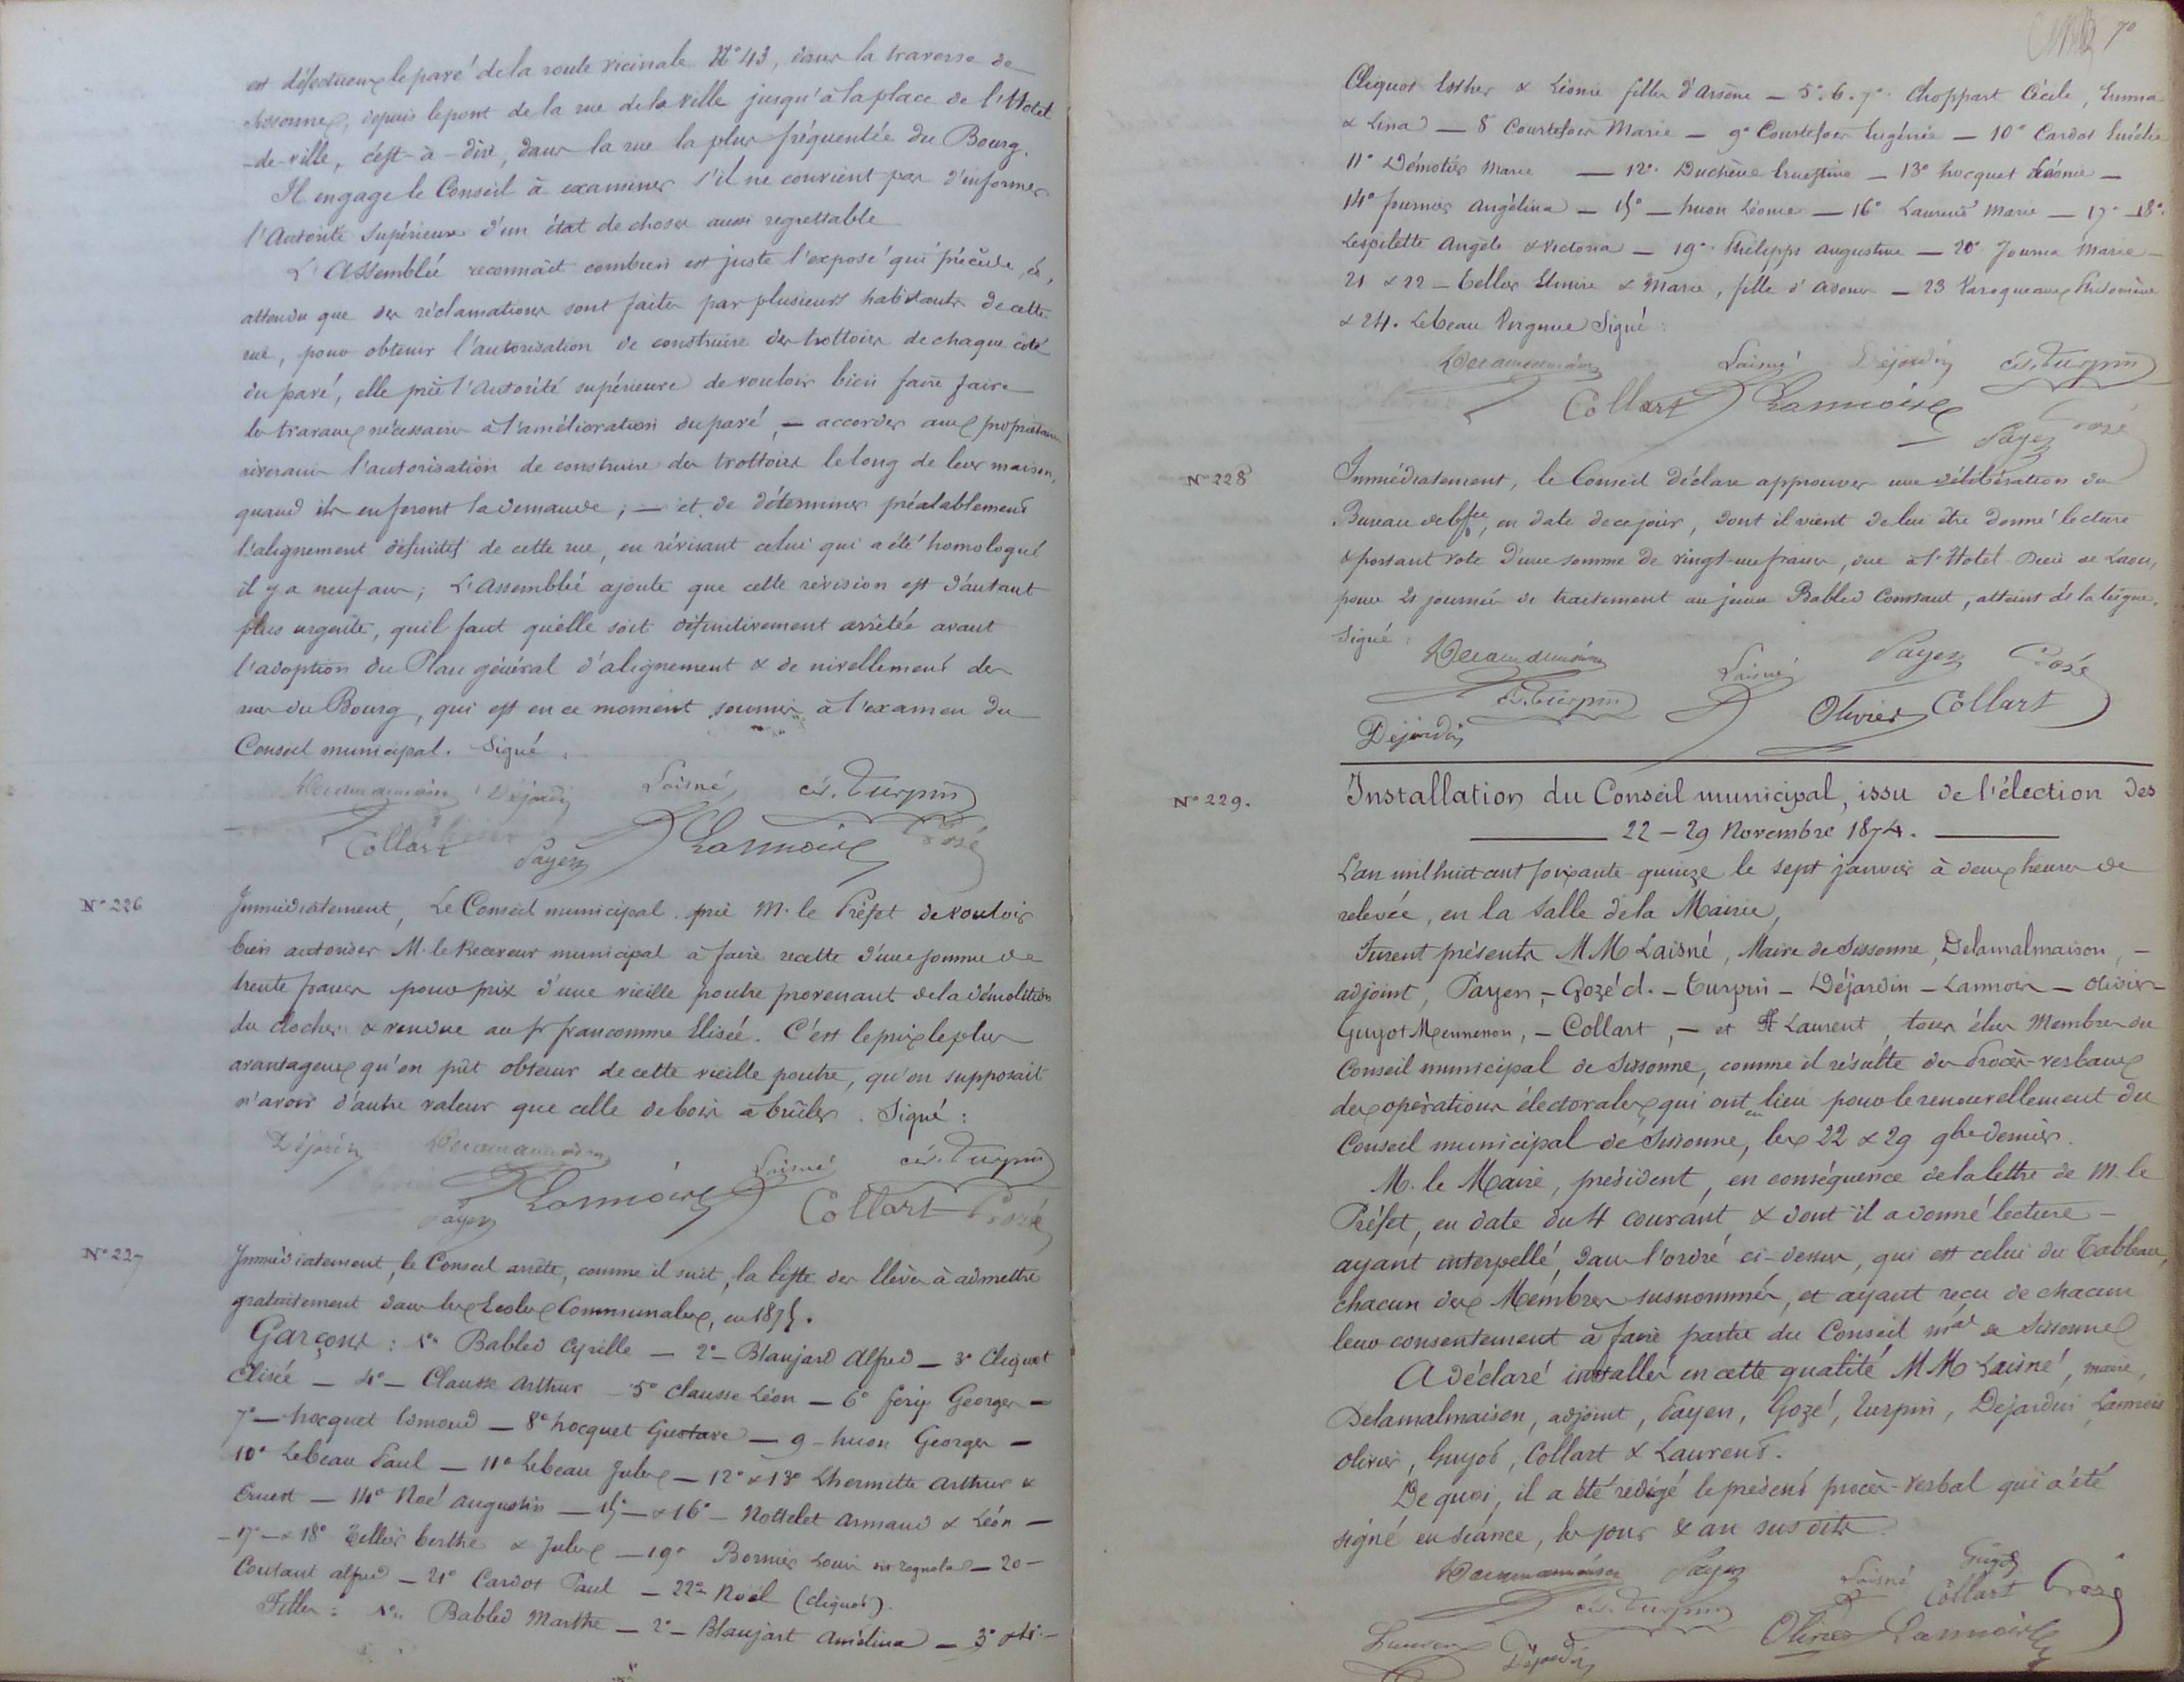 est défectueux le pavé de la route vicinale N° 43, dans la traverse de
Sissonne, depuis le pont de la rue de la ville jusqu'à la place de l'Hotel
-de-ville, c'est-à-dire, dans la rue la plus fréquentée du Bourg.
Il engage le Conseil à examiner s'il ne convient pas d'informer
l'Autorité Supérieure d'un état de choses aussi regrettable
L'Assemblée reconnait combien est juste l'exposé qui précède, et,
attendu que des réclamations sont faites par plusieurs habitants de cette
rue, pour obtenir l'autorisation de construire des trottoirs de chaque côté
du pavé, elle prie l'Autorité supérieure de vouloir bien faire faire
les travaux nécessaires à l'amélioration du pavé, — accorder aux propriétaires
riverains l'autorisation de construire des trottoirs le long de leur maison,
quand ils en feront la demande ; — et de déterminer préalablement
l'alignement définitif de cette rue, en révisant celui qui a été homologué
il y a neuf ans ; L'Assemblée ajoute que cette révision est d'autant
plus urgente, qu'il faut qu'elle soit définitivement arrêtée avant
l'adoption du Plan général d'alignement & de nivellement des
rues du Bourg, qui est en ce moment soumis à l'examen du
Conseil municipal. Signé.
Delamalmaison Déjardin Laisné Cé. Turpin
Collart Olivier Payen Lannois Gozé
N° 226 Immédiatement, Le Conseil municipal prie M. le Préfet de vouloir
bien autoriser M. le Receveur municipal à faire recette d'une somme de
trente francs pour prix d'une vieille poutre provenant de la démolition
du clocher & vendue au Sr francomme Elisée. C'est le prix le plus
avantageux qu'on pût obtenir de cette vieille poutre, qu'on supposait
n'avoir d'autre valeur que celle de bois à brûler. Signé :
Déjardin Delamalmaison Laisné Cé. Turpin
Payen Lannois Collart Gozé
N° 227 Immédiatement, le Conseil arrête, comme il suit, la liste des Elèves à admettre
gratuitement dans les Ecoles Communales, en 1875.
Garçons : 1° Babled Cyrille — 2° — Blanjard Alfred — 3° Cliquot
Elisée — 4° — Clausse Arthur — 5° Clausse Léon — 6° fery Georges —
7° — hocquet Esmond — 8° hocquet Gustave — 9 — huon Georges —
10° Lebeau Paul — 11° Lebeau Jules — 12° & 13° Lhermitte Arthur &
Ernest — 14° Noé Augustin — 15° — & 16° — Nottelet Armand & Léon —
— 17° — & 18° Tellier berthe & Jules — 19° Bornier Louis — 20 —
Coutant alfred — 21° Cardot Paul — 22° Noël (Cliquot).
Filles : 1° Babled Marthe — 2° — Blanjart Amélina — 3° & 4° —
70
Cliquot Esther & Léonie filles d'Arsène — 5°. 6. 7° Choppart Cécile, Emma
& Lina — 8 Courtefois Marie — 9° Courtefois Eugénie — 10° Cardot Emélie
11° Démotier Marie — 12° Duchêne Ernestine — 13° hocquet Léonie —
14° fournier Angélina — 15° — huon Léonie — 16° Laurent Marie — 17° — 18°
Lespilette Angèle & Victoria — 19° Philippe Augustine — 20° Journa Marie —
21 & 22 — Tellier Elmire & Marie, fille d' — 23 Varoqueaux Philomène
& 24. Lebeau Virginie Signé :
Delamalmaison Laisné Déjardin Cé. Turpin
Collart Lannois Payen Gozé
N° 228 Immédiatement, le Conseil déclare approuver une délibération du
Bureau de bfce, en date de ce jour, dont il vient de lui être donné lecture
& portant vote d'une somme de vingt-un francs, due à l'Hotel-Dieu de Laon,
pour 21 journées de traitement au jeune Babled Constant, atteint de la teigne.
Signé : Delamalmaison Laisné Payen Gozé
Cé. Turpin Olivier Collart
Déjardin
N° 229. Installation du Conseil municipal, issu de l'élection des
22 — 29 Novembre 1874.
L'an mil huit cent soixante-quinze le sept janvier à deux heures de
relevée, en la salle de la Mairie,
Furent présents MM Laisné, Maire de Sissonne, Delamalmaison, —
adjoint, Payen, — Gozé d. — Turpin — Déjardin — Lannois — Olivier —
Guyot Mennesson, — Collart, — et Laurent, tous élus Membres du
Conseil municipal de Sissonne, comme il résulte des Procès-verbaux
des opérations électorales qui ont eu lieu pour le renouvellement du
Conseil municipal de Sissonne, les 22 & 29 9bre dernier.
M. le Maire, président, en conséquence de la lettre de M. le
Préfet, en date du 4 courant & dont il a donné lecture —
ayant interpellé, dans l'ordre ci-dessus, qui est celui du Tableau,
chacun des Membres susnommés, et ayant reçu de chacun
leur consentement à faire partie du Conseil mal de Sissonne
A déclaré installés en cette qualité MM Laisné, maire,
Delamalmaison, adjoint, Payen, Gozé, Turpin, Dejardin, Lannois
Olivier, Guyot, Collart & Laurent.
De quoi, il a été rédigé le présent procès-verbal qui a été
signé en séance, les jour & an susdits.
Delamalmaison Payen Laisné Guyot
Cé. Turpin Collart Gozé
Laurent Déjardin Olivier Lannois